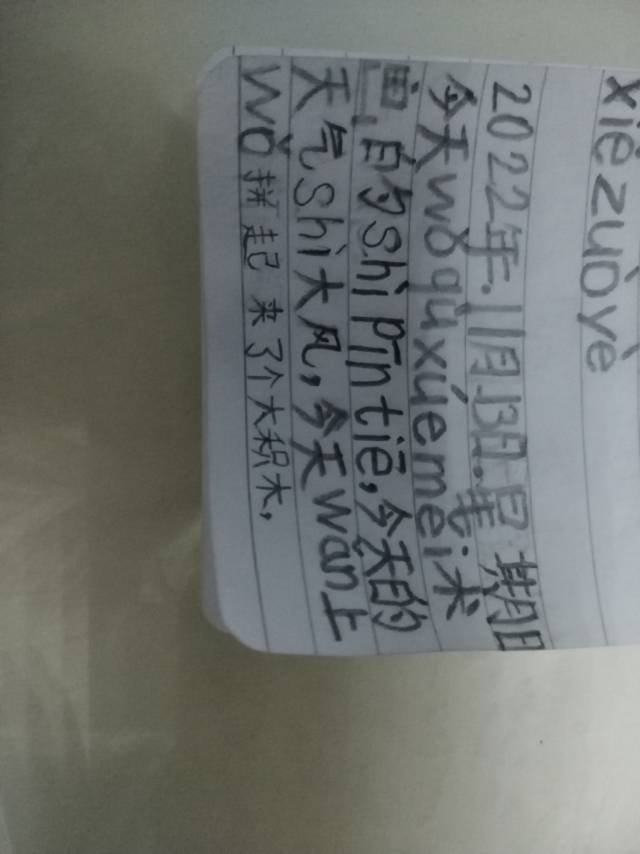 xiězuòyè
2022年.11月13日.星期日
今天wǒqùxúeměi术
画,的shìpīntiē,今天的
天气shì大风,今天wan上
wǒ拼起来了个大积木,